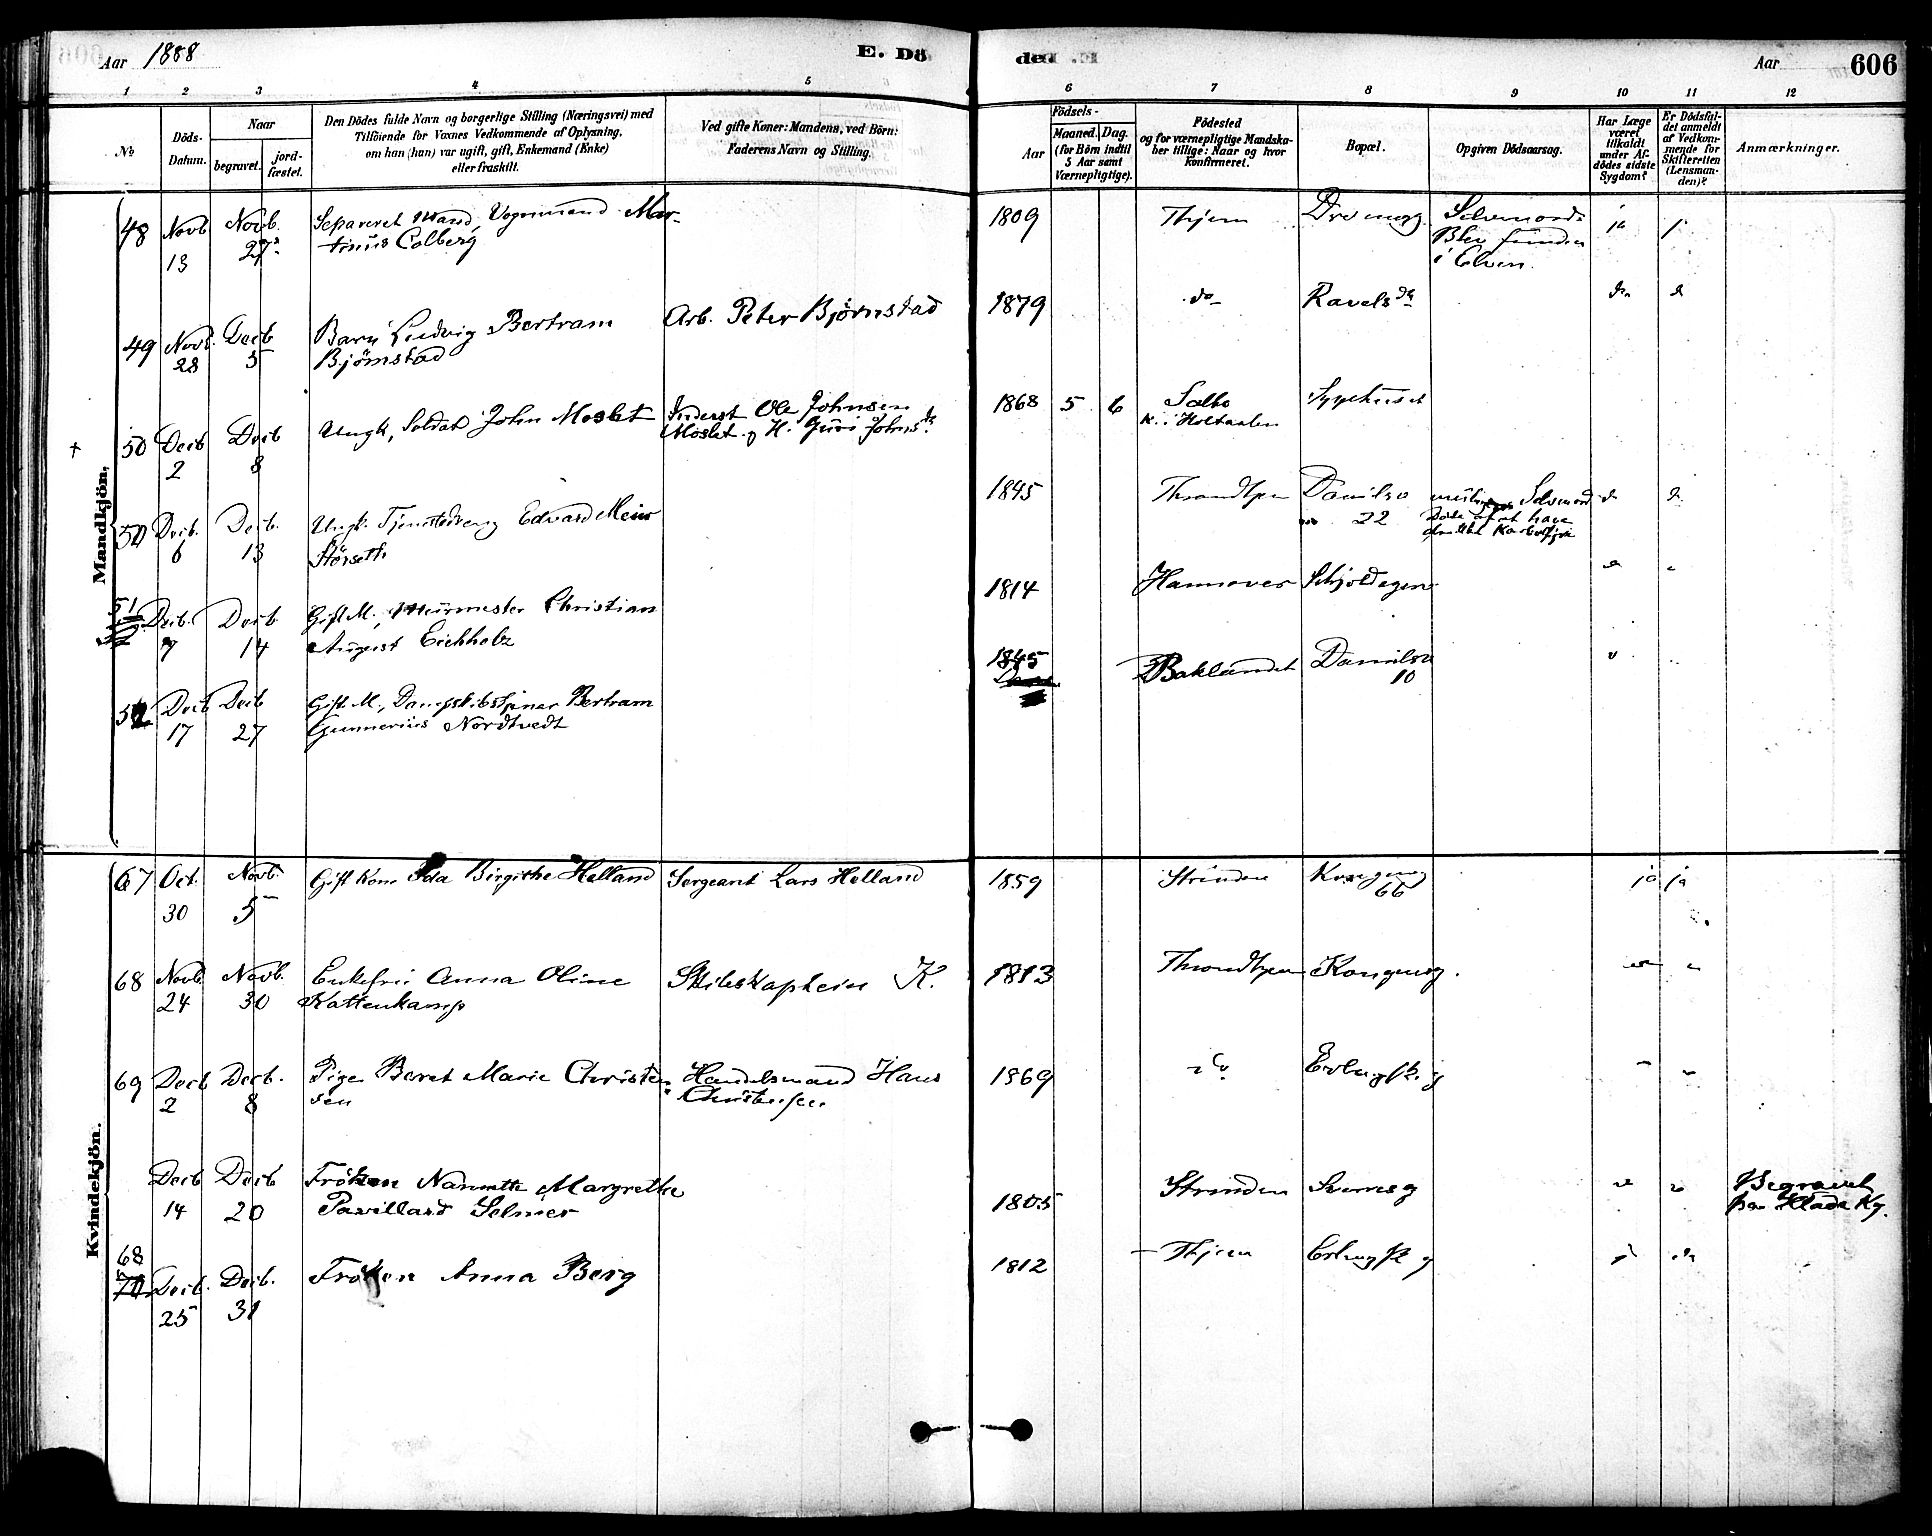 Aar 1888
E. Dö
1 2 3 4 5
No
Döds-
Datum.
Naar
begravet.
jord-
fæstet.
Den Dödes fulde Navn og borgerlige Stilling (Næringsvei) med
Tilföiende for Voxnes Vedkommende af Oplysning,
om han (hun) var ugift, gift, Enkemand (Enke)
eller fraskilt.
Ved gifte Koner: Mandens, ved Börn:
Faderens Navn og Stilling.
Mandkjön.
48 Novb 13 Novb. 27
Separeret Mand, Vognmand Mar-
tinus Colberg
49 Novb. 28 Decb 5
Barn Ludvig Bertram
Björnstad
Arb. Peter Björnstad
50 Decb 2 Decb 8
Ungk, Soldat John Moslet
Inderst Ole Johnsen
Moslet og H. Guri Johnsdr.
50 Decb. 6 Decb. 13
Ungk. Tjenestedreng Edvard Meier
Störseth
51 Decb. 7 Decb 14
Gift M., Murmester Christian
August Eichholz
52 Decb 17 Decb 27
Gift M., Bertram
Gunnerius Nordtvedt
Kvindekjön.
67 Oct. 30 Novb. 5
Gift Kone Ida Birgithe Helland
Sergeant Lars Helland
68 Novb. 24 Novb. 30
Enkefru Anna Oline
Kattenkamp
Skibskaptein K.
69 Decb 2 Decb. 8
Pige Beret Marie Christen-
sen
Handelsmand Hans
Christensen
Decb 14 Decb 20
Fröken Nannette Margrethe
Pavillard Selmer
68
70 Decb. 25 Decb. 31
Fröken Anna Berg
de E.
Aar
606
6 7 8 9 10 11 12
Födsels-
Aar
Maaned. Dag.
(for Börn indtil
5 Aar samt
Værnepligtige).
Födested
og for værnepligtige Mandska-
ber tillige: Naar og hvor
konfirmeret.
Bopæl.
Opgiven Dödsaarsag.
Har Læge
været
tilkaldt
under Af-
dödes sidste
Sygdom?
Er Dödsfal-
det anmeldt
af Vedkom-
mende for
Skifteretten
(Lensman-
den)?
Anmærkninger.
1809 Thjem Selvmord
Blev funden
i Elven. ja
1879 do Ravels
1868 5 6 Selbo
K. i Holtaalen
Sygehuset
1845 Throndhjem
22
Selvmord
Döde af at have
1814 Hannover
1845 Baklandet
10
1859 Strinden
66 ja ja
1813 Throndhjem Kongensg.
1869 do
1805 Strinden Sverresg
Begravet
paa Lade Kg.
1812 Thjem